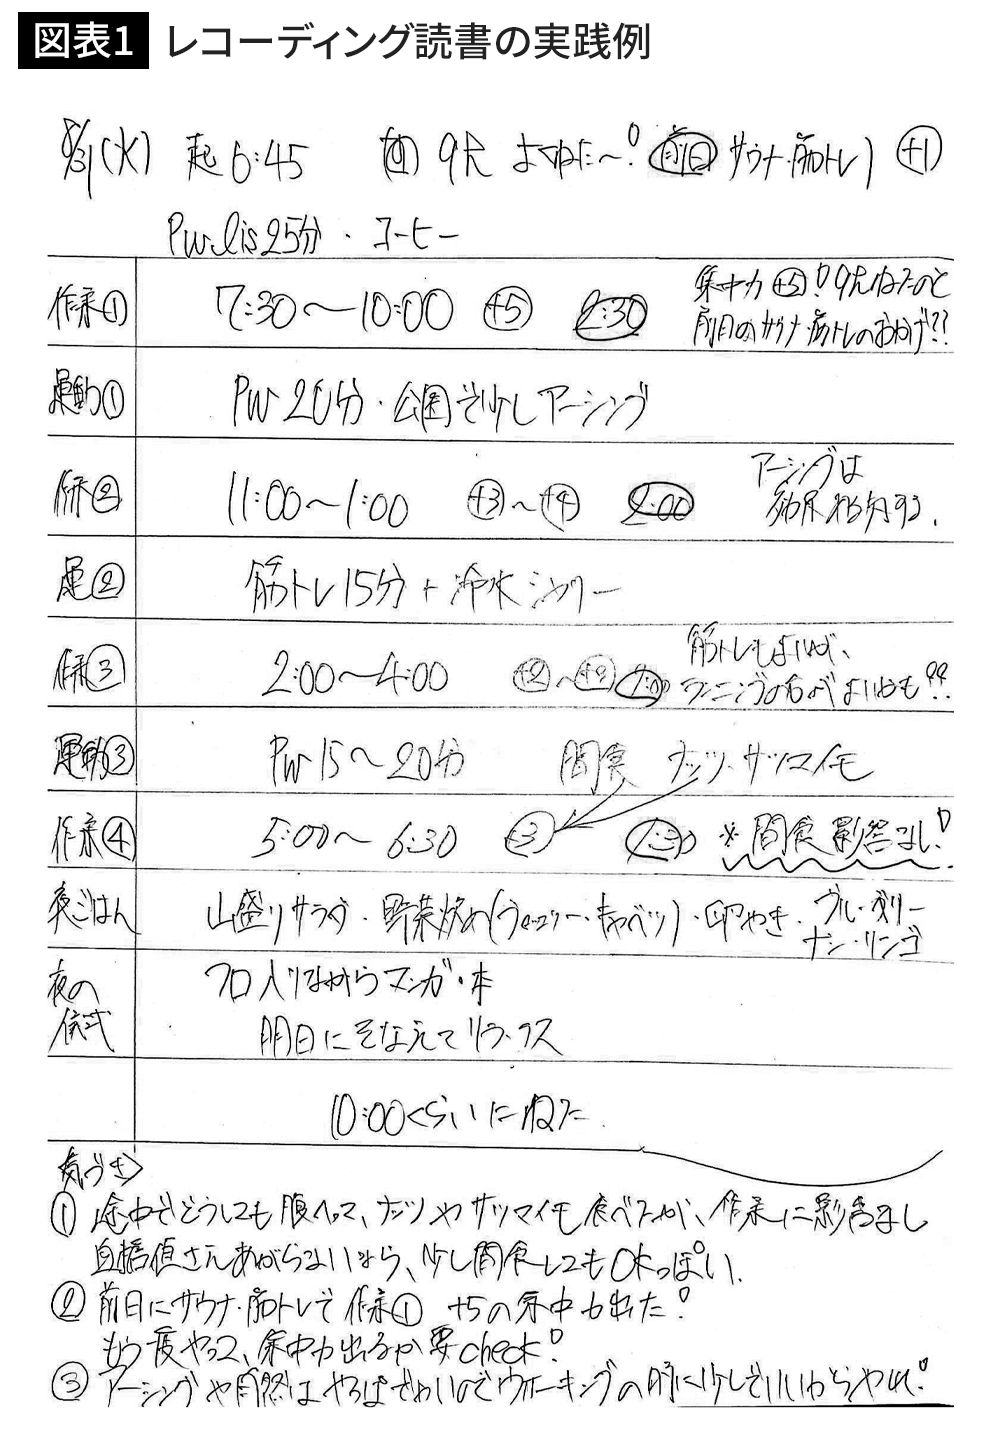 図表1 レコーディング読書の実践例
8/31(火) 起6:45 9h よくねた〜! 前日 サウナ・筋トレ) +1
PW 25分・コーヒー
作業① 7:30〜10:00 +5 2:30 集中力+5! 9hねたのと
前日のサウナ・筋トレのおかげ??
運動① PW 20分・公園で少しアーシング
作業② 11:00〜1:00 +3〜+4 2:00 アーシングは
効果絶対ある.
運② 筋トレ15分+冷水シャワー
作業③ 2:00〜4:00 +2〜+3 筋トレもよいが、
ランニングのがよいかも??
運動③ PW 15〜20分 間食 ナッツ・サツマイモ
作業④ 5:00〜6:30 +3 1:30 ※間食影響なし!
夜ごはん 山盛りサラダ・野菜炒め(ブロッコリー・キャベツ)・卵やき・ブルーベリー
ナシ・リンゴ
夜の儀式 フロ入りながらマンガ・本
明日にそなえてリラックス
10:00くらいにねた
気づき
① 途中でどうしても腹へって、ナッツやサツマイモ食べたが、作業に影響なし
血糖値さえあがらないなら、少し間食してもOKっぽい.
② 前日にサウナ・筋トレで作業① +5の集中力出た!
もう一度やって、集中力出るか要check!
③ アーシングや自然はやっぱでかいのでウォーキングの時に少しでいいからやれ!